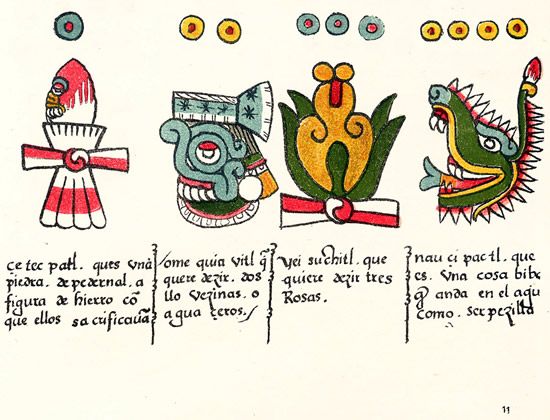 ce tec patl. ques vna
piedra. de pedernal. a
figura de hierro cō
que ellos sacrificauā
ome quia vitl q̄
quere dezir. dos
llo vezinas. o
agua çeros.
yei suchitl. que
quiere dezir tres
Rosas.
nau ci pactl. que
es. vna cosa bibe
q̄ anda en el agu
como. serpezilla
11